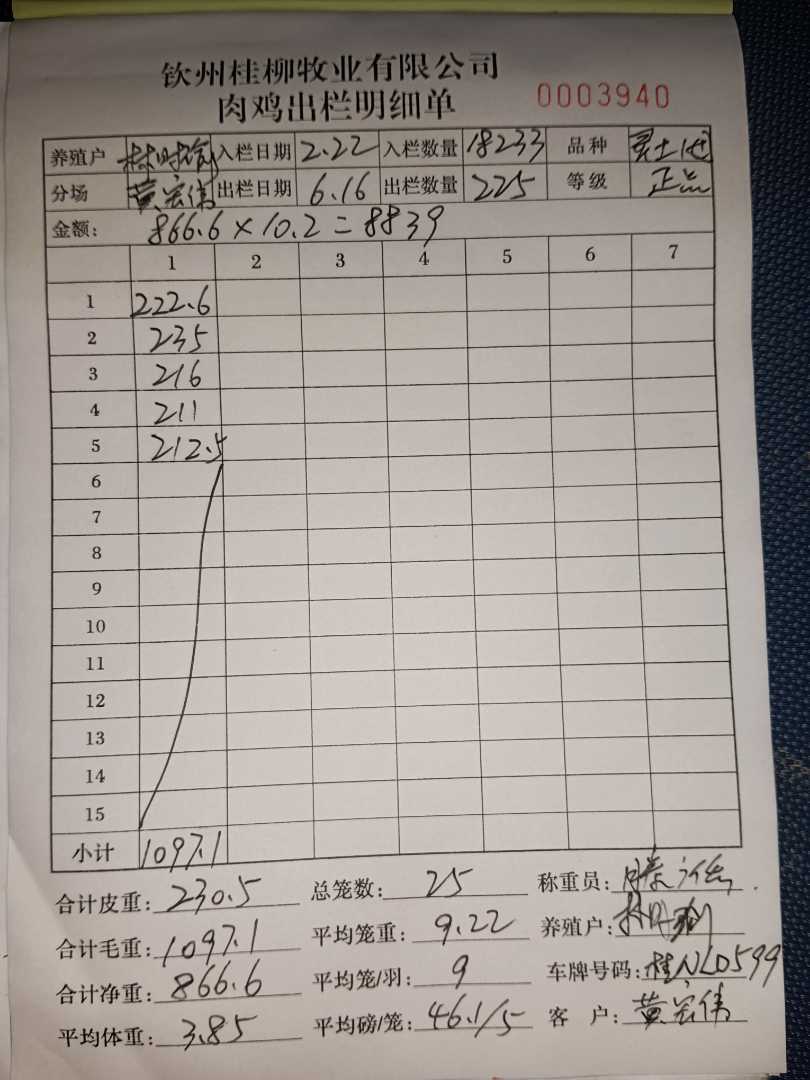 钦州桂柳牧业有限公司
肉鸡出栏明细单 0003940
养殖户 林时 入栏日期 2.22 入栏数量 18233 品种 土
分场 黄宏伟 出栏日期 6.16 出栏数量 225 等级 正品
金额: 866.6 × 10.2 = 8839
1 2 3 4 5 6 7
1 222.6
2 235
3 216
4 211
5 212.5
6
7
8
9
10
11
12
13
14
15
小计 1097.1
合计皮重: 230.5 总笼数: 25 称重员:
合计毛重: 1097.1 平均笼重: 9.22 养殖户: 林时
合计净重: 866.6 平均笼/羽: 9 车牌号码: 桂NLD599
平均体重: 3.85 平均磅/笼: 46.1/5 客 户: 黄宏伟